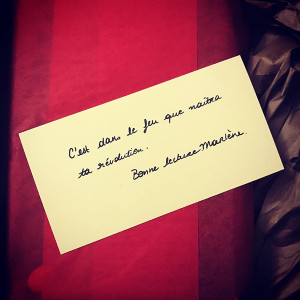 C'est dans le feu que naîtra
ta révolution.
Bonne lecture Marlène.